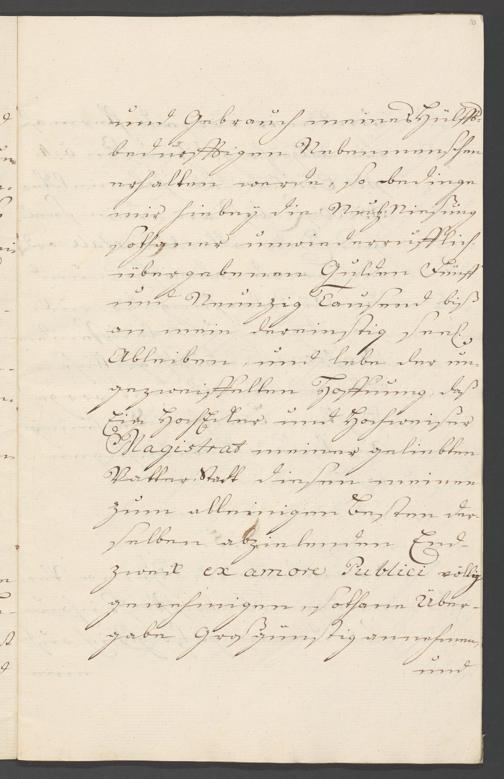 und Gebrauch meines Hülffs-
bedürfftigen Nebenmenschen
erhalten werde, so bedinge
mir hiebey die Nutz-Niesung
sothaner unwiederrufflich
übergebenen Gulden Fünff
und Neunzig Tausend biß
an mein dereinstig seel.
Ableiben, und lebe der un-
gezweiffelten Hoffnung, daß
Ein HochEdler und Hochweiser
Magistrat meiner geliebten
Vatter-Statt diesen meinen
zum alleinigen Besten der-
selben abzielenden End-
zweck ex amore Publici völlig
genehmigen, sothane Über-
gabe Großgünstig annehmen,
und